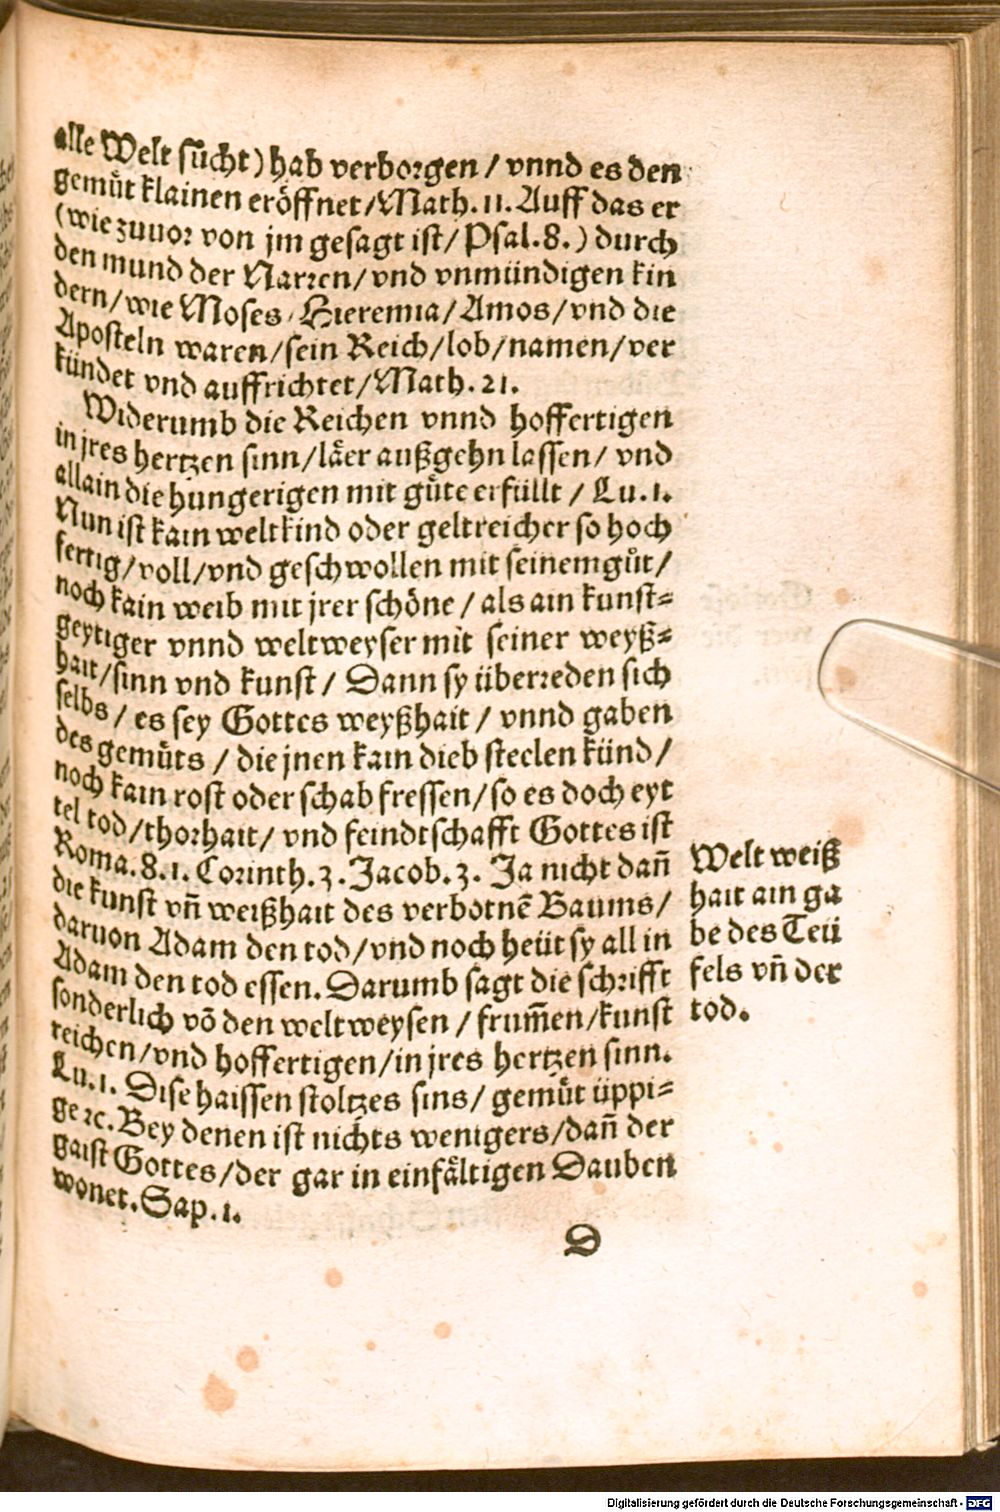 alle Welt sücht) hab verborgen / vnnd es den
gemuͤt klainen eröffnet / Math. 11. Auff das er
(wie zuuor von jm gesagt ist / Psal. 8.) durch
den mund der Narren / vnd vnmündigen kin
dern / wie Moses / Hieremia / Amos / vnd die
Aposteln waren / sein Reich / lob / namen / ver
kündet vnd auffrichtet / Math. 21.
Widerumb die Reichen vnnd hoffertigen
in jres hertzen sinn / laͤer außgehn lassen / vnd
allain die hungerigen mit guͤte erfüllt / Lu. 1.
Nun ist kain weltkind oder geltreicher so hoch
fertig / voll / vnd geschwollen mit seinem guͤt /
noch kain weib mit jrer schöne / als ain kunst⸗
geytiger vnnd weltweyser mit seiner weyß⸗
hait / sinn vnd kunst / Dann sy überreden sich
selbs / es sey Gottes weyßhait / vnnd gaben
des gemuͤts / die jnen kain dieb steelen künd /
noch kain rost oder schab fressen / so es doch eyt
tel tod / thorhait / vnd feindtschafft Gottes ist
Roma. 8. 1. Corinth. 3. Jacob. 3. Ja nicht dañ
die kunst vñ weißhait des verbotnẽ Baums /
daruon Adam den tod / vnd noch heüt sy all in
Adam den tod essen. Darumb sagt die schrifft
sonderlich võ den weltweysen / frum̃en / kunst
reichen / vnd hoffertigen / in jres hertzen sinn.
Lu. 1. Dise haissen stoltzes sins / gemuͤt üppi⸗
ge ꝛc. Bey denen ist nichts wenigers / dañ der
gaist Gottes / der gar in einfaͤltigen Dauben
wonet. Sap. 1.
Welt weiß
hait ain ga
be des Teü
fels vñ der
tod.
D
Digitalisierung gefördert durch die Deutsche Forschungsgemeinschaft - DFG